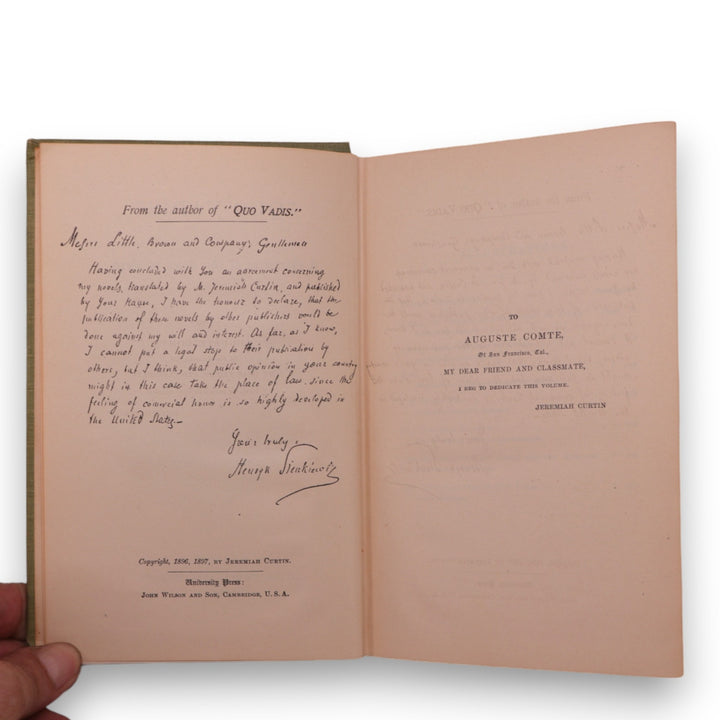 From the author of "QUO VADIS."
Messrs Little, Brown and Company; Gentlemen
Having concluded with You an agreement concerning
my novels, translated by M. Jeremiah Curtin, and published
by Your House, I have the honour to declare, that the
publication of these novels by other publishers would be
done against my will and interest. As far, as I know,
I cannot put a legal stop to their publication by
others, but I think, that public opinion in your country
might in this case take the place of law, since the
feeling of comercial honor is so highly developed in
the United States.—
Yours truly.
Henryk Sienkiewicz
Copyright, 1896, 1897, BY JEREMIAH CURTIN.
University Press:
JOHN WILSON AND SON, CAMBRIDGE, U.S.A.
TO
AUGUSTE COMTE,
Of San Francisco, Cal.,
MY DEAR FRIEND AND CLASSMATE,
I BEG TO DEDICATE THIS VOLUME.
JEREMIAH CURTIN